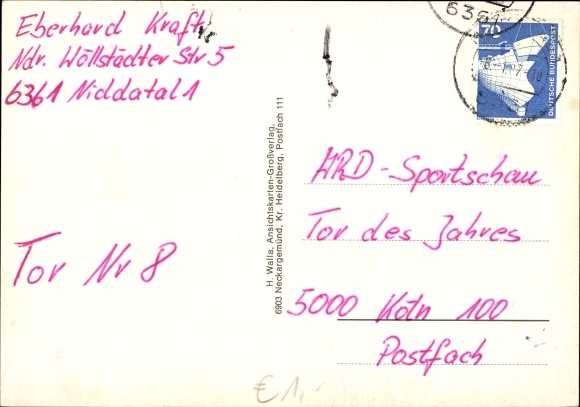 Eberhard Kraft
Ndr. Wöllstädter Str 5
6361 Niddatal 1
Tor Nr 8
H. Walla, Ansichtskarten-Großverlag,
6903 Neckargemünd, Kr. Heidelberg, Postfach 111
6361
70
DEUTSCHE BUNDESPOST
ARD-Sportschau
Tor des Jahres
5000 Köln 100
Postfach
€ 1,-